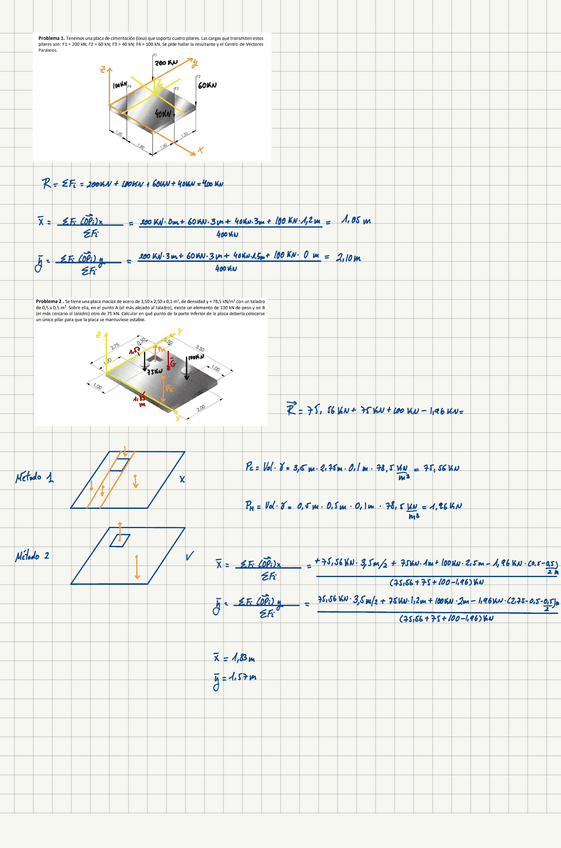 Problema 1. Tenemos una placa de cimentación (losa) que soporta cuatro pilares. Las cargas que transmiten estos
pilares son: F1 = 200 kN, F2 = 60 kN, F3 = 40 kN, F4 = 100 kN. Se pide hallar la resultante y el Centro de Vectores
Paralelos.
200 KN
y
z
100KN
60KN
40KN
x
R = ΣFi = 200KN + 100KN + 60KN + 40KN = 400 KN
x̄ = ΣFi (OPi)x / ΣFi = 200 KN · 0m + 60 KN · 3m + 40KN · 3m + 100 KN · 1,2m / 400KN = 1,05 m
ȳ = ΣFi (OPi)y / ΣFi = 200 KN · 3m + 60 KN · 3m + 40KN · 1,5m + 100 KN · 0 m / 400KN = 2,10m
Problema 2 . Se tiene una placa maciza de acero de 3,50 x 2,50 x 0,1 m³, de densidad γ = 78,5 kN/m³ con un taladro
de 0,5 x 0,5 m². Sobre ella, en el punto A (el más alejado al taladro), existe un elemento de 100 kN de peso y en B
(el más cercano al taladro) otro de 75 kN. Calcular en qué punto de la parte inferior de la placa debería colocarse
un único pilar para que la placa se mantuviese estable.
75KN
100KN
1.00
2.00
R = 75,56 KN + 75 KN + 100 KN - 1,96 KN=
Método 1
X
Pc = Vol · γ = 3,5m · 2,75m · 0,1 m · 78,5 KN/m³ = 75,56 KN
PH = Vol · γ = 0,5 m · 0,5 m · 0,1m · 78,5 KN/m³ = 1,96 KN
Método 2
V
x̄ = ΣFi (OPi)x / ΣFi = +75,56 KN · 3,5m/2 + 75KN · 1m + 100KN · 2,5m - 1,96 KN · (0,5-0,5/2)m / (75,56 + 75 + 100 - 1,96) KN
ȳ = ΣFi (OPi)y / ΣFi = 75,56 KN · 3,5m/2 + 75 KN · 1,2m + 100KN · 2m - 1,96KN · (2,75-0,5-0,5/2)m / (75,56 + 75 + 100 - 1,96) KN
x̄ = 1,83m
ȳ = 1,57m